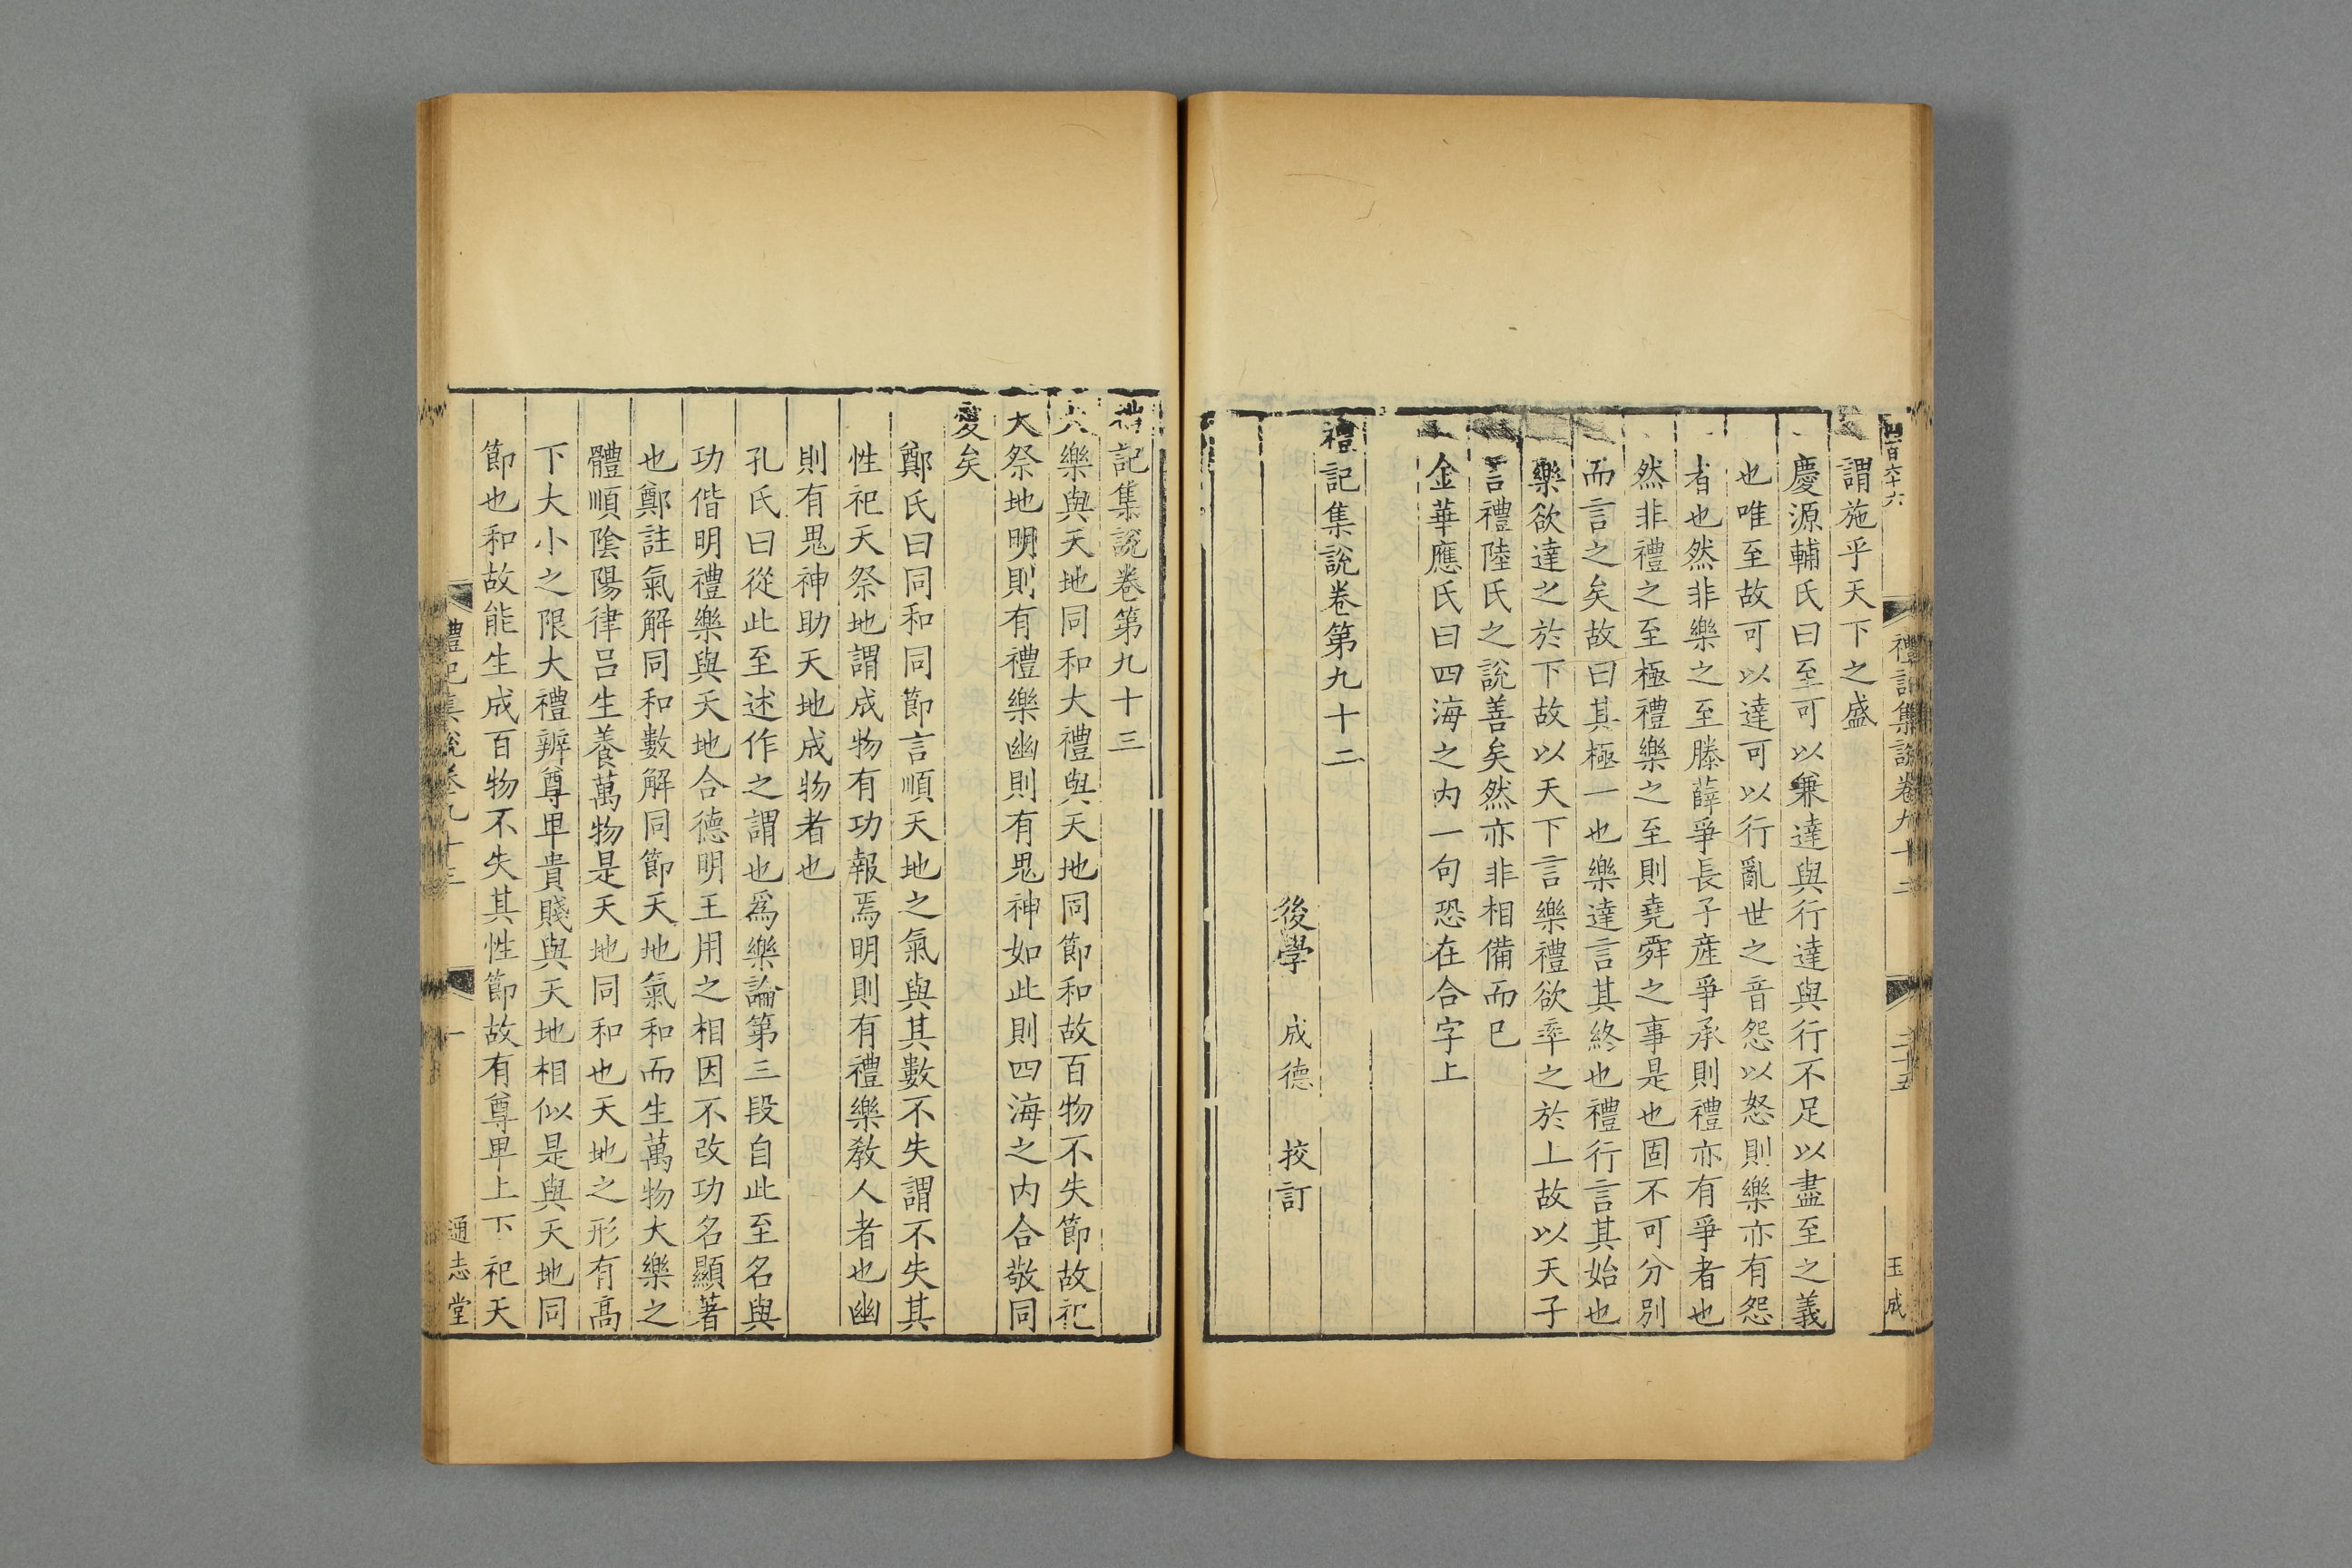 四百六十六
禮記集說卷九十二
二十五
玉成
謂施乎天下之盛
慶源輔氏曰至可以兼達與行達與行不足以盡至之義
也唯至故可以達可以行亂世之音怨以怒則樂亦有怨
者也然非樂之至滕薛爭長子産爭承則禮亦有爭者也
然非禮之至極禮樂之至則堯舜之事是也固不可分别
而言之矣故曰其極一也樂達言其終也禮行言其始也
樂欲達之於下故以天下言樂禮欲率之於上故以天子
言禮陸氏之說善矣然亦非相備而已
金華應氏曰四海之内一句恐在合字上
禮記集說卷第九十二
後學 成德 挍訂
禮記集說卷第九十三
大樂與天地同和大禮與天地同節和故百物不失節故祀
天祭地明則有禮樂幽則有鬼神如此則四海之内合敬同
愛矣
鄭氏曰同和同節言順天地之氣與其數不失謂不失其
性祀天祭地謂成物有功報焉明則有禮樂教人者也幽
則有鬼神助天地成物者也
孔氏曰從此至述作之謂也爲樂論第三段自此至名與
功偕明禮樂與天地合德明王用之相因不改功名顯著
也鄭註氣解同和數解同節天地氣和而生萬物大樂之
體順陰陽律吕生養萬物是天地同和也天地之形有高
下大小之限大禮辨尊卑貴賤與天地相似是與天地同
節也和故能生成百物不失其性節故有尊卑上下祀天
禮記集說卷九十三
一
通志堂